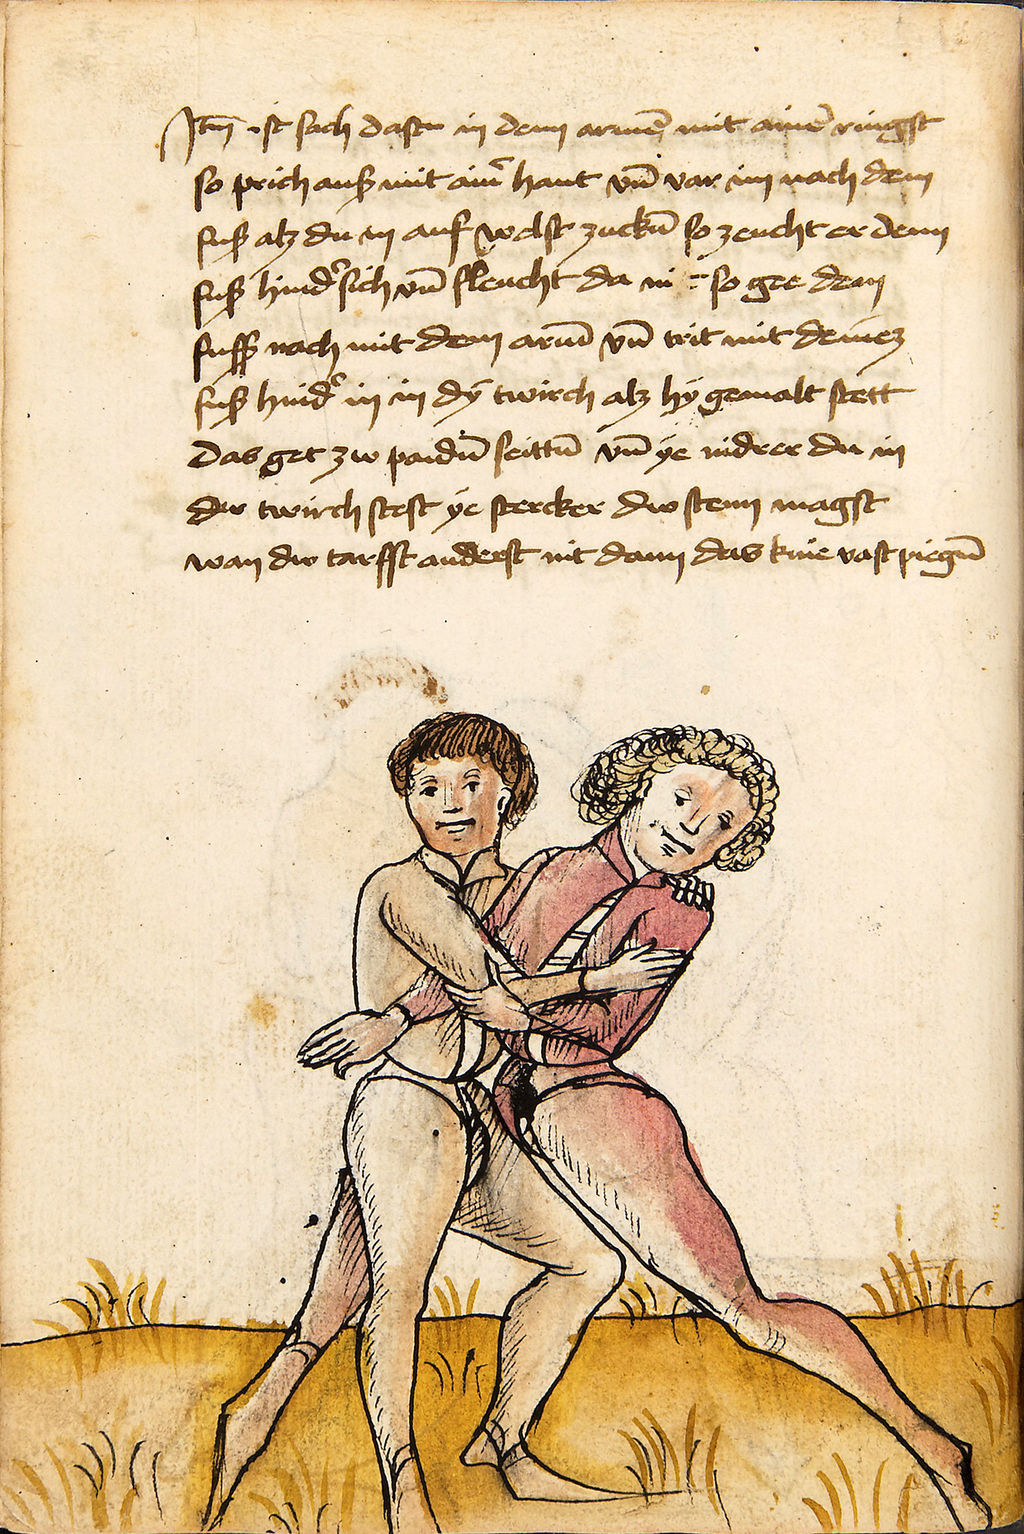 Itm ist sach dastu in denn armen̄ mit aine᷑ ringst
so prich auß mit aim᷑ hant vn̄ var im nach dem
fuß alz du in auf wolst zuckn̄ so zeucht er denn
fuß hind᷑ sich vn̄ fleucht da mi so gee dem
fuss nach mit dem arm̄ vn̄ trit mit deinez
fuß hind᷑ in in dÿ twirch alz hÿ gemalt stett
das get zw paidn̄ seittn̄ vn̄ ÿe nidrer du in
der twirch stest ÿe stercker dw stenn magst
wan dw tarfst anderst nit dann das knie vast piegn̄